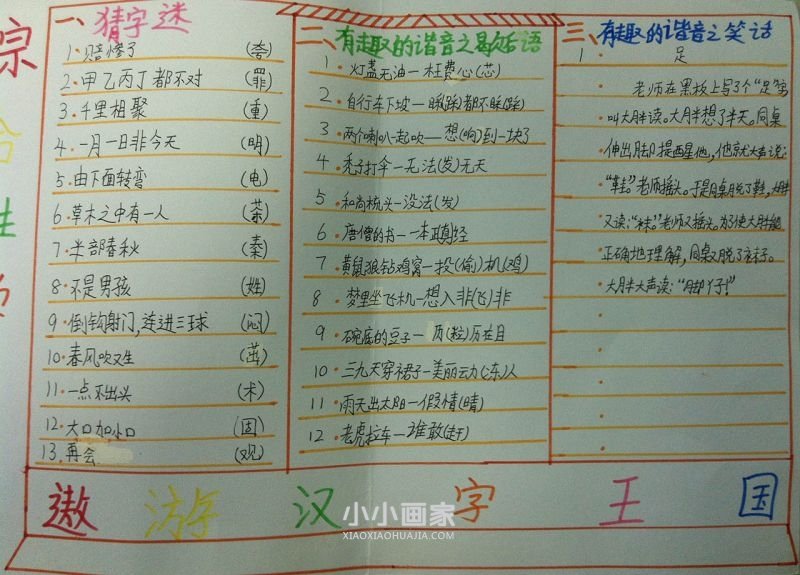 一、猜字迷
1·赔惨了 (夸)
2·甲乙丙丁都不对 (罪)
3·千里相聚 (重)
4·一月一日非今天 (明)
5·由下面转弯 (电)
6·草木之中有一人 (茶)
7·半部春秋 (秦)
8·不是男孩 (姓)
9·倒钩射门,连进三球 (闷)
10·春风吹又生 (茁)
11·一点不出头 (术)
12·大口加小口 (固)
13·再会 (观)
二、有趣的谐音之歇后语
1·灯盏无油—枉费心(芯)
2·自行车下坡—睬(踩)都不睬(踩)
3·两个喇叭一起吹—想(响)到一块了
4·秃子打伞—无法(发)无天
5·和尚梳头—没法(发)
6·唐僧的书—一本真经
7·黄鼠狼钻鸡窝—投(偷)机(鸡)
8·梦里坐飞机—想入非(飞)非
9·碗底的豆子—历(粒)历在目
10·三九天穿裙子—美丽动(冻)人
11·雨天出太阳—假情(晴)
12·老虎拉车—谁敢(赶)
三、有趣的谐音之笑话
1· 足
老师在黑板上写了个“足”字
叫大胖读。大胖想了半天。同桌
伸出脚提醒他,他就大声说:
“鞋。”老师摇头。于是同桌脱了鞋,大胖
又读:“袜。”老师又摇头。为了使大胖能
正确地理解,同桌又脱了袜子。
大胖大声读:“脚丫子!”
遨游汉字王国
小小画家
XIAOXIAOHUAJIA.COM